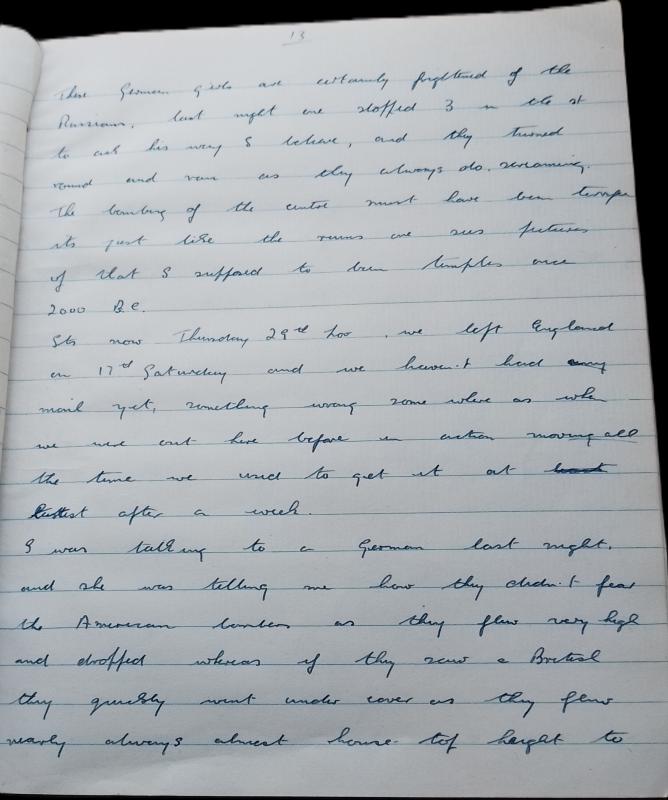 13
These German girls are certainly frightened of the
Russians, last night one stopped 3 in the st
to ask his way I believe, and they turned
round and ran as they always do. screaming.
The bombing of the centre must have been
its just like the ruins one sees pictures
of that I supposed to been temples once
2000 B.C.
Its now Thursday 29th Nov, we left England
on 17th Saturday and we haven't had any
mail yet, something wrong some where as when
we were out here before in action moving all
the time we used to get it at
latest after a week.
I was talking to a German last night.
and she was telling me how they didn't fear
the American bombers as they flew very high
and dropped whereas if they saw a British
they quickly went under cover as they flew
nearly always almost house top height to